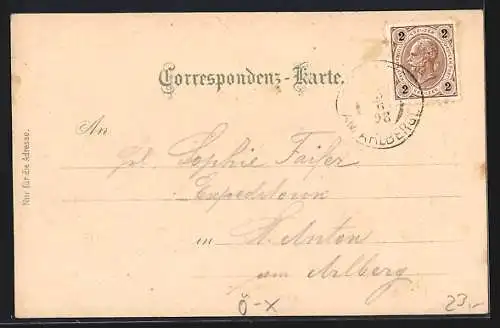 Correspondenz-Karte.
2 2
2 2
98
AM ARLBERG
An
Frl. Sophie Faifer
Expeditorin
in St. Anton
am Arlberg
Nur für die Adresse.
Ö-X
23,-